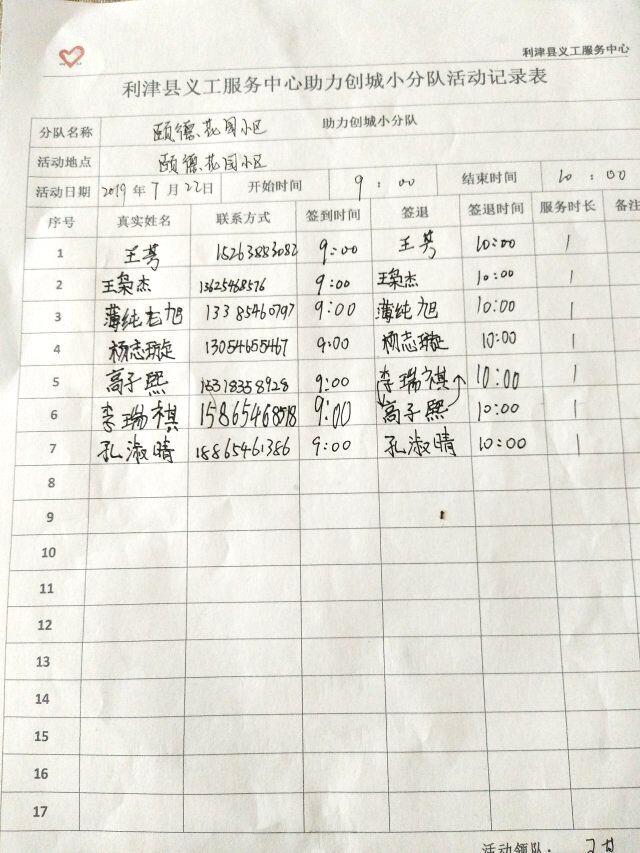 利津县义工服务中心
利津县义工服务中心助力创城小分队活动记录表
分队名称 颐德花园小区 助力创城小分队
活动地点 颐德花园小区
活动日期 2019年7月22日 开始时间 9:00 结束时间 10:00
序号 真实姓名 联系方式 签到时间 签退 签退时间 服务时长 备注
1 王芳 15263883082 9:00 王芳 10:00 1
2 王枭杰 13625468576 9:00 王枭杰 10:00 1
3 薄纯旭 13385460797 9:00 薄纯旭 10:00 1
4 杨志璇 13054655467 9:00 杨志璇 10:00 1
5 高子熙 15318358928 9:00 李瑞祺 10:00 1
6 李瑞祺 15865468518 9:00 高子熙 10:00 1
7 孔淑晴 18865461386 9:00 孔淑晴 10:00 1
8
9
10
11
12
13
14
15
16
17
活动领队: